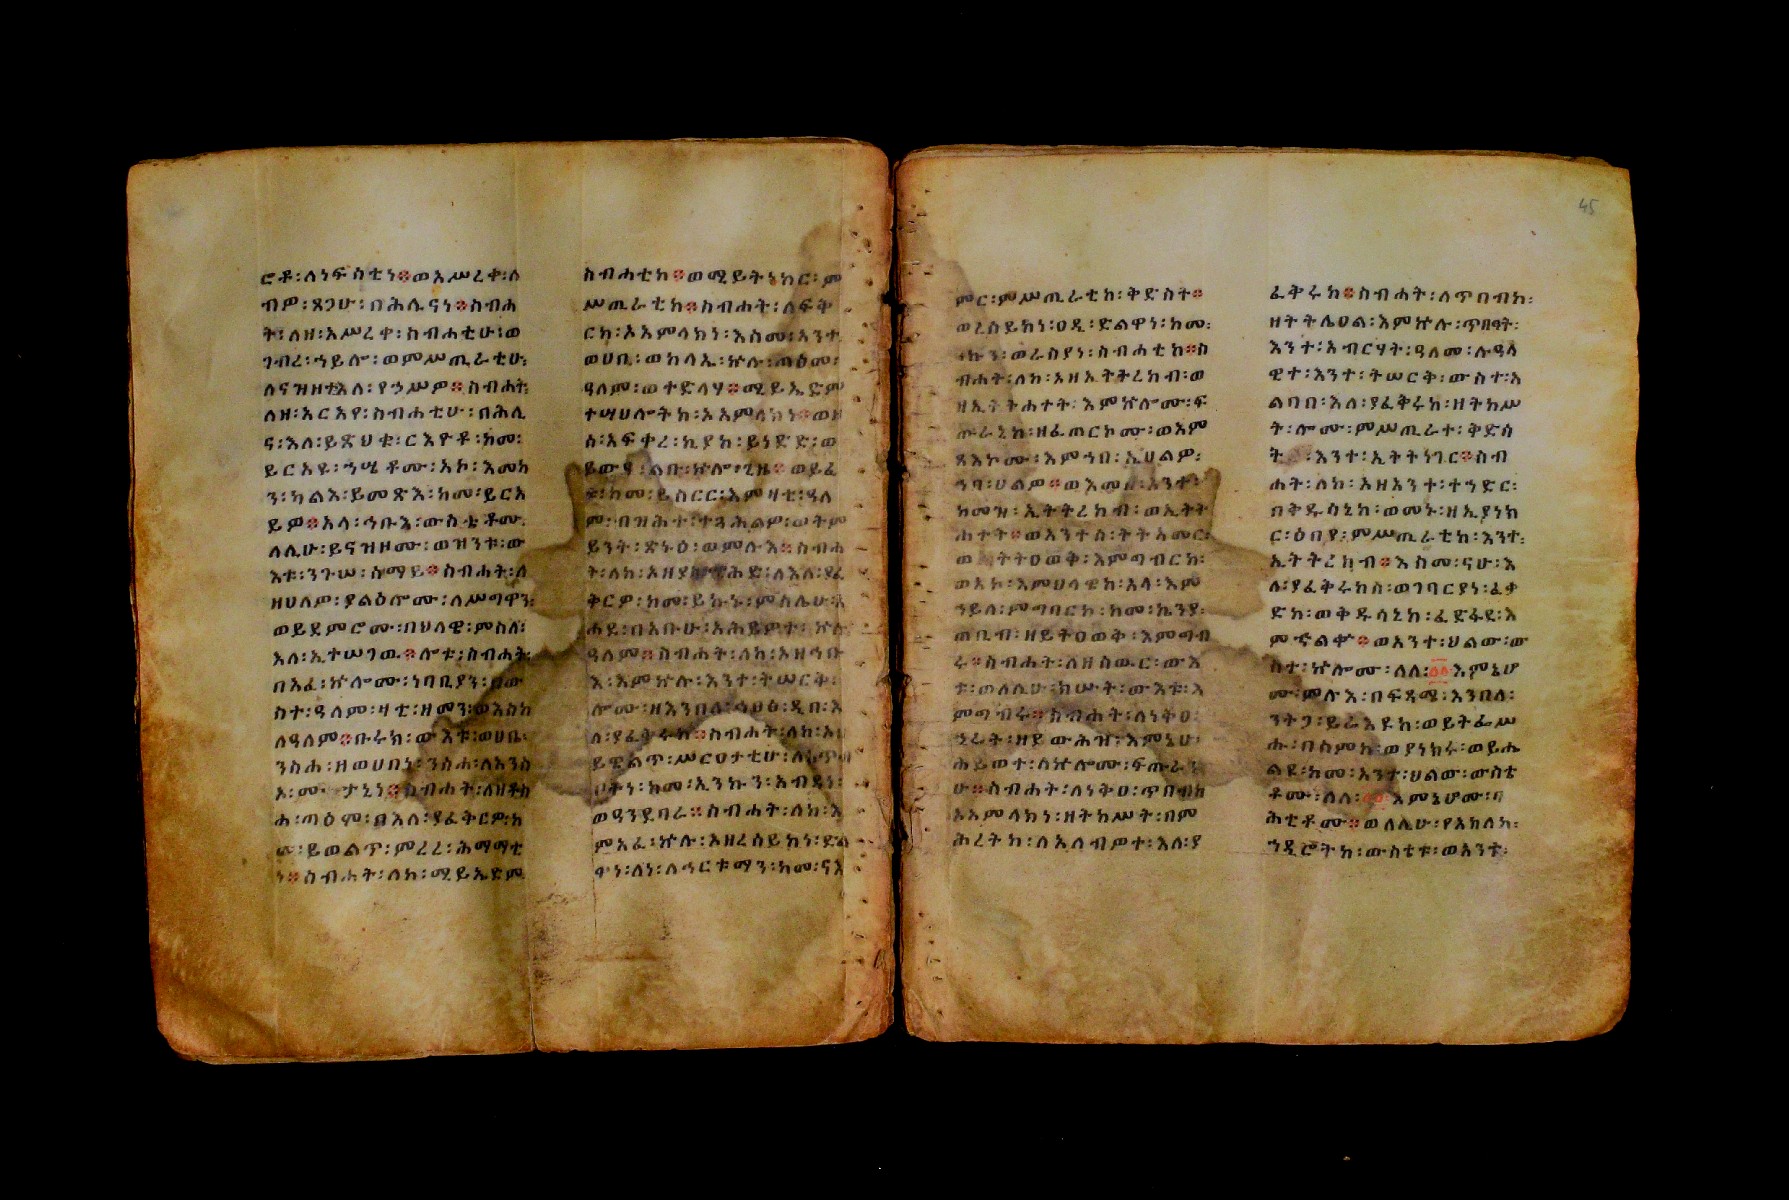 ሮቶ፡ለነፍስቲነ፨ወአሥረቀ፡ለ
ብዎ፡ጸጋሁ፡በሕሊናነ፨ስብሐ
ት፡ለዘ፡አሥረቀ፡ስብሐቲሁ፡ወ
ገብረ፡ኀይሎ፡ወምሥጢራቲሁ፡
ስብሐት፡
ለዘ፡አርአየ፡ስብሐቲሁ፡በሕሊ
ና፡እለ፡ይጸህቁ፡ርእዮቶ፡ከመ፡
ይርአዩ፡ኅሤቶሙ፡አኮ፡እመከ
ን፡ካልእ፡ይመጽእ፡ከመ፡ይርአ
ይዎ፨አላ፡ኅቡእ፡ውስቴቶሙ፡
ለሊሁ፡ይናዝዞሙ፡ወዝንቱ፡ው
እቱ፡ንጉሠ፡ሰማይ፨ስብሐት፡ለ
ዘሀለዎ፡ያልዕሎሙ፡ለሥጋዋን፡
ወይደምሮሙ፡በህላዌ፡ምስለ፡
እለ፡ኢተሠገዉ፨ሎቱ፡ስብሐት፡
በአፈ፡ኵሎሙ፡ነባቢያን፡በው
ስተ፡ዓለም፡ዛቲ፡ዘመን፡ወእስከ
ለዓለም፨ቡሩክ፡ውእቱ፡ወሀቤ፡
ንስሐ፡ዘወሀበነ፡ንስሐ፡ለአንስ
ስብሐት፡
ሐ፡ጣዕም፡በእለ፡ያፈቅርዎ፡ከ
መ፡ይወልጥ፡ምረረ፡ሕማማቲ
ነ፨ስብሐት፡ለከ፡ሚይኤድም
ስብሐቲከ፨ወሚይትነከር፡ም
ሥጢራቲከ፨ስብሐት፡ለፍቅ
ርከ፡ኦአምላክነ፡እስመ፡አንተ
ወሀቢ፡ወከላኢ፡ኵሉ፡ጣዕመ፡
ዓለም፡ወተድላሃ፨ሚይኤድም
ተሣህሎትከ፡ኦአምላክነ፨ወዘ
ሰ፡አፍቀረ፡ኪያከ፡ይነድድ፡ወ
ይውዒ፡ልቡ፡ኵሎ፡ጊዜ፨ወይፈ
ቱ፡ከመ፡ይስርር፡እምዛቲ፡ዓለ
ይንት፡ጽኑዕ፡ወምሉእ፨ስብሐ
ቅርዎ፡ከመ፡ይኩኑ፡ምስሌሁ፡
ዓለም፨ስብሐት፡ለከ፡ኦዘኅቡ
እ፡እምኵሉ፡እንተ፡ትሠርቅ፡
ለ፡ያፈቅሩከ፨ስብሐት፡ለከ፡
ይዌልጥ፡ሥርዐታቲሁ፡
ህትነ፡ከመ፡ኢንኩን፡አብዳነ፡
ወዓንዩባራ፨ስብሐት፡ለከ፡እ
ምአፈ፡ኵሉ፡ኦዘረሰይከነ፡ድል
ዋነ፡ለነ፡ለኅርቱማን፡ከመ፡ናእ
ምር፡ምሥጢራቲከ፡ቅድስት፨
ወረሰይከነ፡ዐዲ፡ድልዋነ፡ከመ፡
ንኩን፡ወራስያነ፡ስብሐቲከ፨ስ
ብሐት፡ለከ፡ኦዘኢትትረከብ፡ወ
ዘኢትትሐተት፡እምኵሎሙ፡ፍ
ጡራኒከ፡ዘፈጠርኮሙ፡ወአም
ጻእኮሙ፡እምኀበ፡ኢሀልዎ፡
ኀበ፡ሀልዎ፨
ከመዝ፡ኢትትረከብ፡ወኢትት
ሐተት፨ወአንተሰ፡ትትአመር፡
ትትዐወቅ፡እምግብርከ፡
ወአኮ፡እምህላዌከ፡አላ፡እም
ኀይለ፡ምግባርከ፡ከመ፡ኬንያ፡
ጠቢብ፡ዘይትዐወቅ፡እምግብ
ሩ፨ስብሐት፡ለዘስዉር፡ውእ
ቱ፡ወለሊሁ፡ክሡት፡ውእቱ፡እ
ምግብሩ፨ስብሐት፡ለነቅዐ፡
ኂሩት፡ዘየውሕዝ፡እምኔሁ፡
ሕይወተ፡ለኵሎሙ፡ፍጡራን
ሁ፨ስብሐት፡ለነቅዐ፡ጥበብከ
ኦአምላክነ፡ዘትከሥት፡በም
ሕረትከ፡ለአለብዎተ፡እለ፡ያ
ፈቅሩከ፨ስብሐት፡ለጥበብከ፡
ዘትትሌዐል፡እምኵሉ፡ጥበባት፡
እንተ፡አብርሃት፡ዓለመ፡ሉዓላ
ዊተ፡እንተ፡ትሠርቅ፡ውስተ፡አ
ልባበ፡እለ፡ያፈቅሩከ፡ዘትከሥ
ት፡ሎሙ፡ምሥጢራተ፡ቅድሳ
ት፡እንተ፡ኢትትነገር፨ስብ
ሐት፡ለከ፡ኦዘአንተ፡ተኀድር፡
በቅዱሳኒከ፡ወመኑ፡ዘኢያነክ
ር፡ዕበየ፡ምሥጢራቲከ፡እንተ፡
ኢትትረከብ፨እስመ፡ናሁ፡እ
ለ፡ያፈቅሩከሰ፡ወገባርያነ፡ፈቃ
ድከ፡ወቅዱሳኒከ፡ፈድፋደ፡እ
ምኍልቍ፨ወአንተ፡ህልው፡ው
ስተ፡ኵሎሙ፡ለለ፡፩፩እምኔሆ
ሙ፡ምሉእ፡በፍጻሜ፡እንበለ፡
ንትጋ፡ይሬእዩከ፡ወይትፌሥ
ሑ፡በስምከ፡ወያነክሩ፡ወይሔ
ልዩ፡ከመ፡አንተ፡ህልው፡ውስቴ
ቶሙ፡ለለ፡፩፩እምኔሆሙ፡በ
ሕቲቶሙ፨ወለሊሁ፡የአክለከ፡
ኀዲሮትከ፡ውስቴቱ፡ወአንተ፡